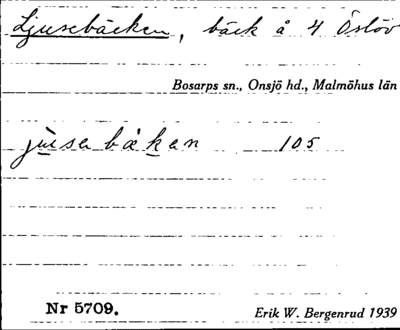 Ljusebäcken, bäck å 4 Öslöv
Bosarps sn., Onsjö hd., Malmöhus län
105
Nr 5709.
Erik W. Bergenrud 1939